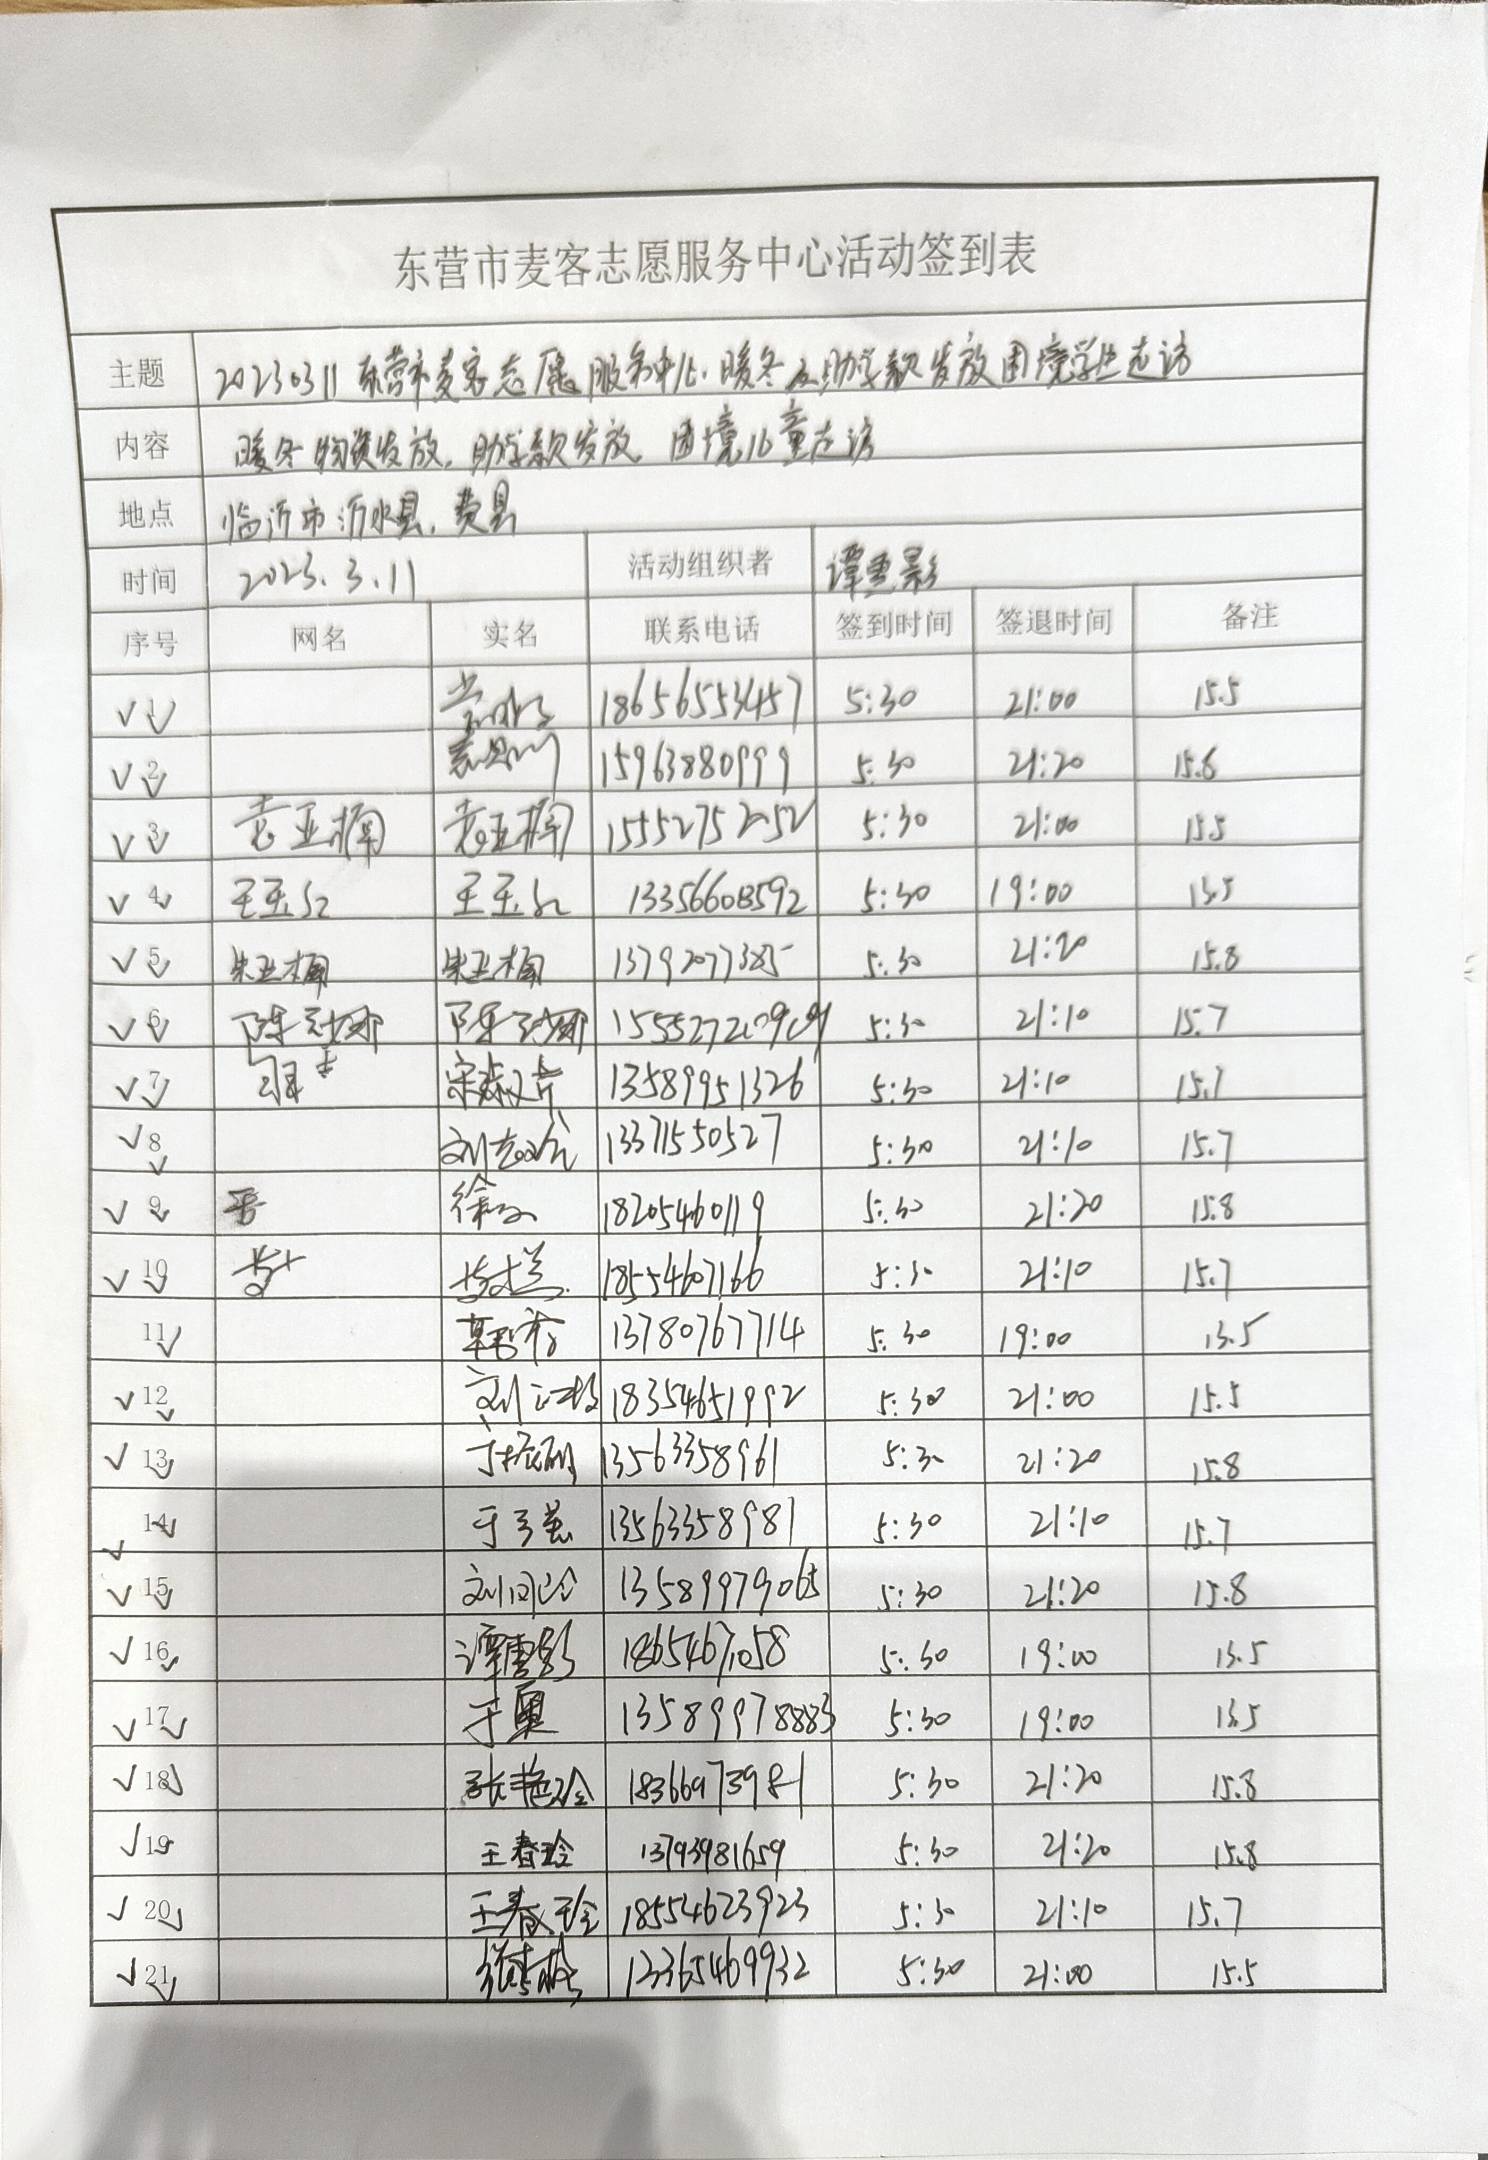 东营市麦客志愿服务中心活动签到表
主题 20230311东营市麦客志愿服务中心暖冬及助学款发放困境学生走访
内容 暖冬物资发放,助学款发放,困境儿童走访
地点 临沂市沂水县,费县
时间 2023.3.11 活动组织者 谭雪影
序号 网名 实名 联系电话 签到时间 签退时间 备注
1 18656553457 5:30 21:00 15.5
2 15963880999 5:30 21:20
3 袁亚楠 袁亚楠 15552752052 5:30 21:00 15.5
4 王玉红 王玉红 5:30 19:00 13.5
5 朱亚楠 朱亚楠 13792077385 5:30 21:20 15.8
6 5:30 21:10 15.7
7 宋淑芹 13589951326 5:30 21:10 15.7
8 13371550527 5:30 21:10 15.7
9 18205460119 5:30 21:20 15.8
10 18554607166 5:30 21:10 15.7
11 13780767714 5:30 19:00 13.5
12 18354651992 5:30 21:00 15.5
13 13563358961 5:30 21:20 15.8
14 13563358981 5:30 21:10 15.7
15 5:30 21:20 15.8
16 谭雪影 5:30 19:00 13.5
17 13589978883 5:30 19:00 13.5
18 张艳玲 18366973981 5:30 21:20 15.8
19 王春玲 13793981659 5:30 21:20 15.8
20 王春玲 18554623923 5:30 21:10 15.7
21 13365469932 5:30 21:00 15.5